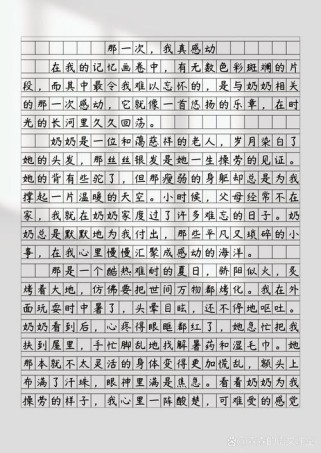 那一次，我真感动
在我的记忆画卷中，有无数色彩斑斓的片
段，而其中最令我难以忘怀的，是与奶奶相关
的那一次感动，它就像一首悠扬的乐章，在时
光的长河里久久回荡。
奶奶是一位和蔼慈祥的老人，岁月染白了
她的头发，那丝丝银发是她一生操劳的见证。
她的背有些驼了，但那瘦弱的身躯却总是为我
撑起一片温暖的天空。小时候，父母经常不在
家，我就在奶奶家度过了许多难忘的日子。奶
奶总是默默地为我付出，那些平凡又琐碎的小
事，在我心里慢慢汇聚成感动的海洋。
那是一个酷热难耐的夏日，骄阳似火，炙
烤着大地，仿佛要把世间万物都烤化。我在外
面玩耍时中暑了，头晕目眩，还不停地呕吐。
奶奶看到后，心疼得眼眶都红了，她急忙把我
扶到屋里，手忙脚乱地找解暑药和湿毛巾。她
那本就不太灵活的身体变得更加慌乱，额头上
布满了汗珠，眼神里满是焦急。看着奶奶为我
操劳的样子，我心里一阵酸楚，可难受的感觉